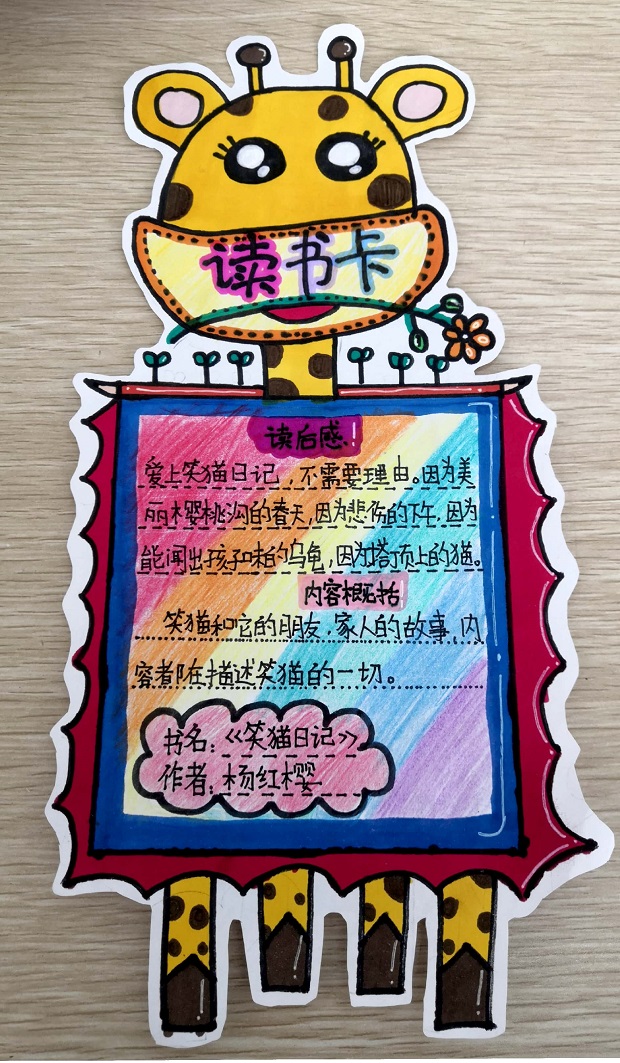 读书卡
读后感!
爱上笑猫日记，不需要理由。因为美
丽樱桃沟的春天，因为悲伤的下午，因为
能闻出孩子味的乌龟，因为塔顶上的猫。
内容概括
笑猫和它的朋友，家人的故事，内
容都在描述笑猫的一切。
书名：《笑猫日记》
作者：杨红樱